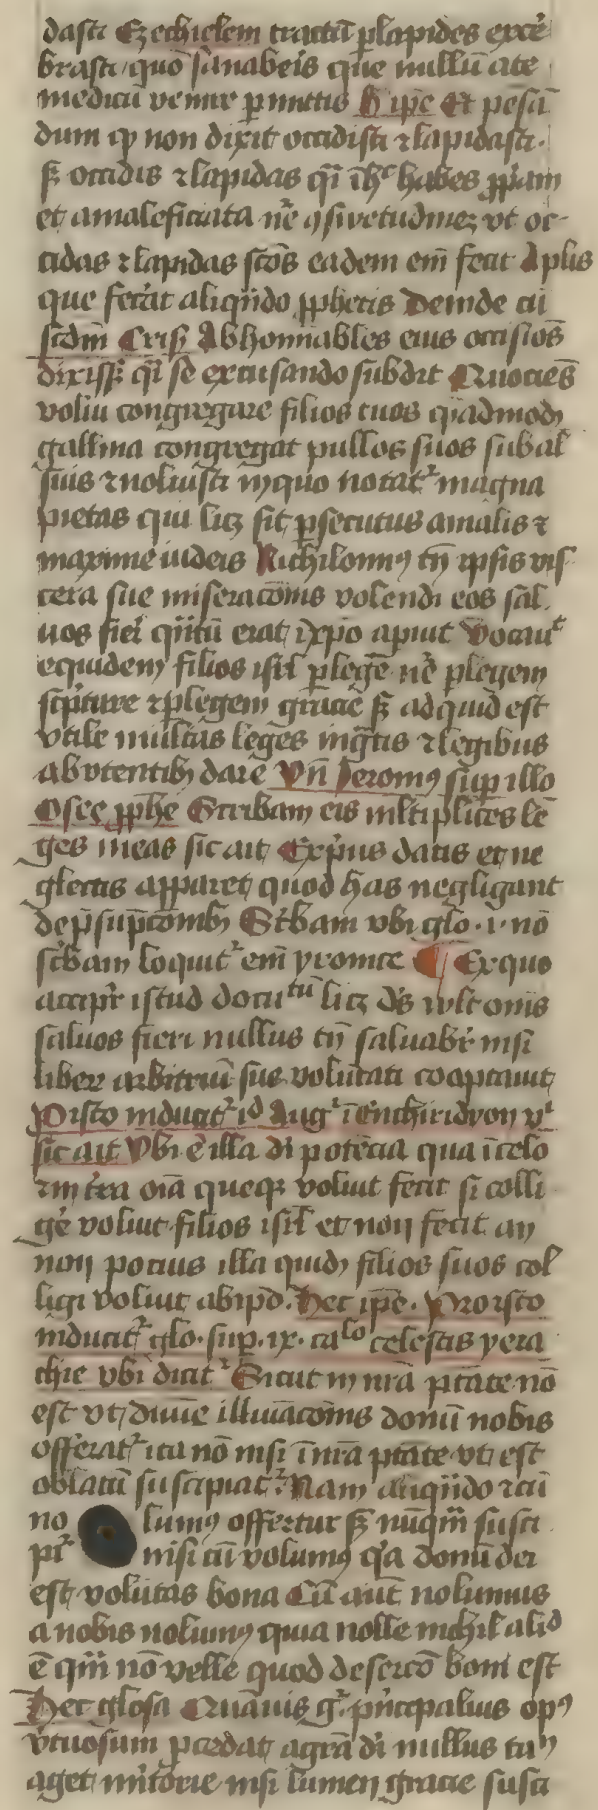 dasti Ezechielem tractū ꝑ lapides excē
brasti quō sanabeis que nullū a te
medicū venire ꝑmittis Hͨ ip̄e Et pesā
dum ꝙ non dixit occidisti ⁊ lapidasti.
ſꝫ occidis ⁊ lapidas qͥ ih̄ͨ habes ꝓpͥam
et amaleficiata nr̄e ꝯsiuetudinez vt oc-
cidas ⁊ lapidas sc̄os eadem em̄ fecit Aplis
que fecͣat aliqn̄do ꝓphetis Deinde cū
scd̄m Cris. Abhominables eius occisiōs
dixisſꝫ qͥ se excusando subdit Quociēs
volui congregare filios tuos q̄admodꝫ
gallina congregat pullos suos sub al
suis ⁊ noluisti in quo notatͬ magna
pietas qui licꝫ sit ꝑsecutus a malis ⁊
maxime iudeis Nichilomiꝰ tn̄ ipsis vis
cera sue miseracōnis volendi eos sal
uos fieri qn̄tū erat in xp̄o apiut Vocauͭ
equidem filios isrl̄ ꝑ legē nē ꝑ legem
scͥpture ⁊ ꝑ legem grācie ſꝫ ad quid est
vtile multas leges īgͣtis ⁊ legibus
abutentibꝫ dare Vn̄ Jeromꝰ suꝑ illo
Osee ꝓphē Scribam eis ml̄tiplices le
ges meas sic ait Ex pͥus datis et ne
glectis apparet quod has negligant
de p̄supc̄ombꝫ Scͥbam vbi glo. i. nō
scͥbam loquitͬ em̄ yronice ¶ Ex quo
accipͥt istud docuͭū licꝫ dꝰs wlt om̄s
saluos fieri nullus tn̄ saluabͥ nisi
liber arbitriū sue volūtati coaptauit
Pro isto inducitͬ id Augͬ ī enchiridyon vͥ
sic ait Vbi ē illa di potēcia qua ī celo
⁊ in tr̄a oīa queqꝫ voluit fecit si colli
gē voluit filios isrl̄ et non fecit an
non pocius illa quidꝫ filios suos col
ligi voluit ab ip̄o. Hec ip̄e. Pro isto
inducitͬ glo. sup. ix. caˡᵒ celestis yera
chie vbi dicitͬ Sicut in nrā ptāte nō
est vt diuīe illuīacōnis donū nobis
offeratͬ ita nō nisi ī nrā ptāte vt est
oblatū suscipiatͬ. Nam aliqn̄do ⁊ cū
no lumꝰ offertur ſꝫ nūqm̄ susci
pͥt nisi cū volumꝰ qͥa donū dei
est volūtas bona Cū aūt nolumus
a nobis nolumꝰ quia nolle nichil alid
ē qm̄ nō velle quod desercō boni est
Hec glosa Quāuis gͦ. pn̄cipalius opꝰ
v̄tuosum ꝓcedat a grā di nullus tn̄
aget mͥtorie nisi lumen gracie susci